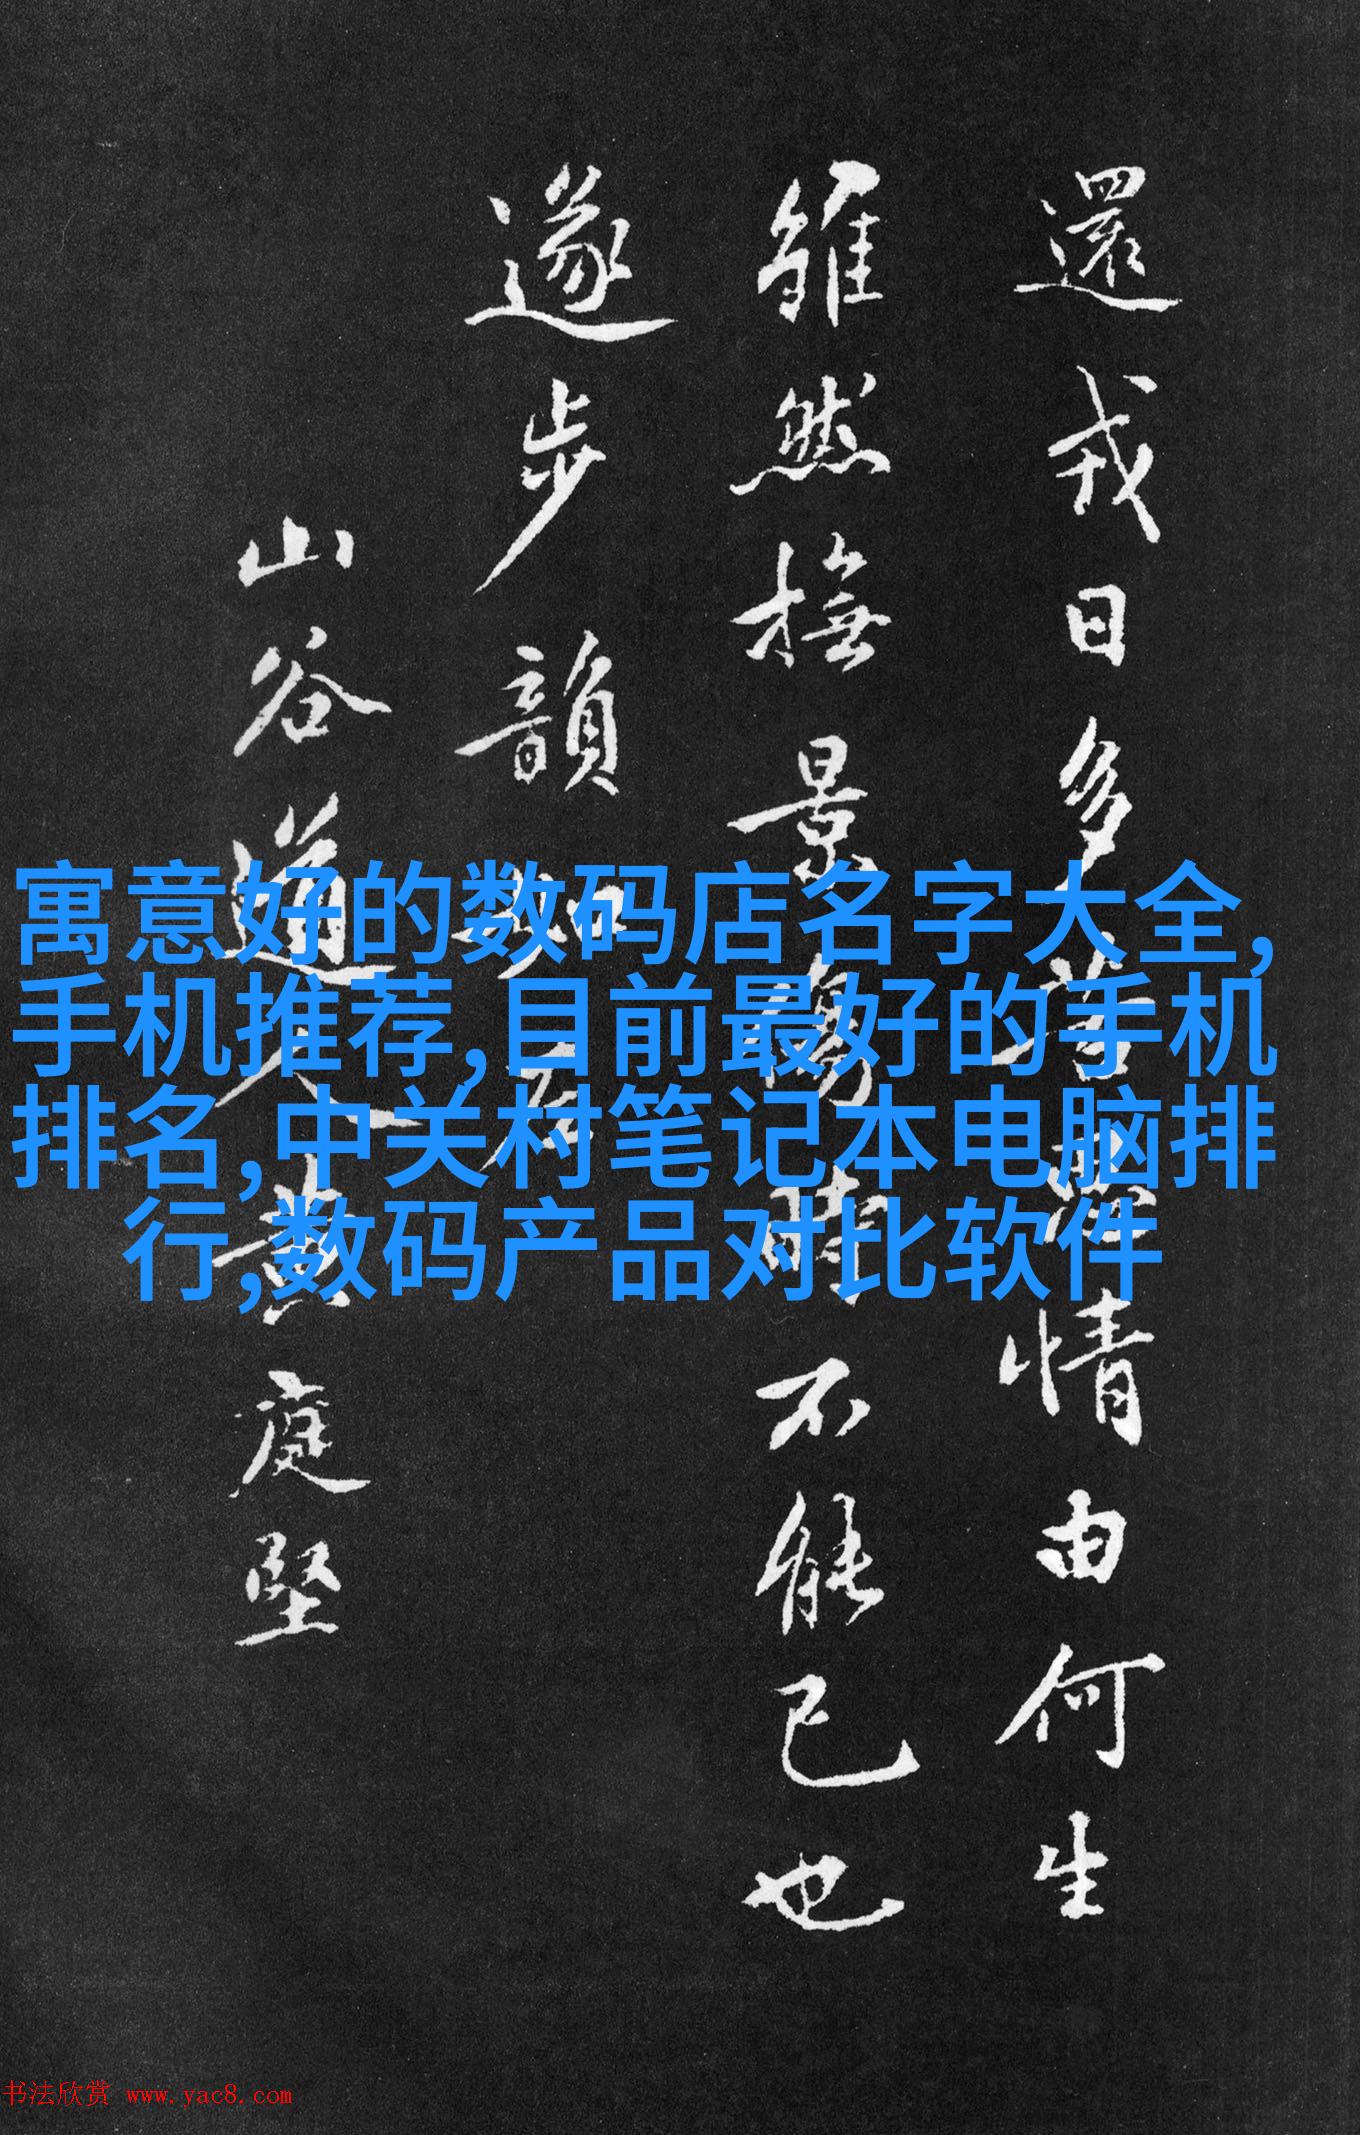 還戎日多苦情由何生
雖然撫景傷時不能已也
遂步韻如右
山谷道人黃庭堅
寓意好的数码店名字大全,
手机推荐,目前最好的手机
排名,中关村笔记本电脑排
行,数码产品对比软件
书法欣赏 www.yac8.com